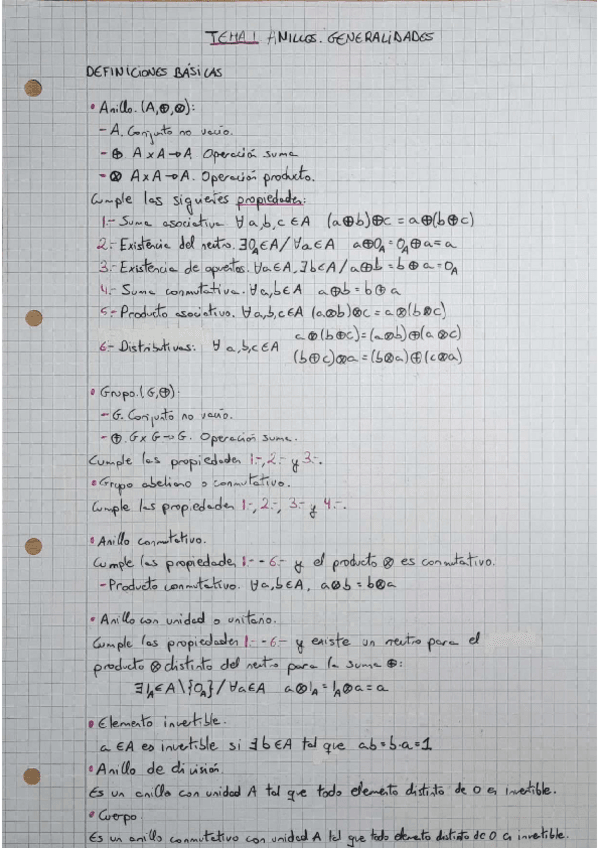 TEMA 1. ANILLOS. GENERALIDADES
DEFINICIONES BÁSICAS
• Anillo. (A,⊕,⊗):
- A. Conjunto no vacío.
- ⊕ A×A→A Operación suma
- ⊗ A×A→A. Operación producto.
Cumple las siguientes propiedades:
1.- Suma asociativa ∀a,b,c∈A (a⊕b)⊕c = a⊕(b⊕c)
2.- Existencia del neutro. ∃0_A∈A/∀a∈A a⊕0_A=0_A⊕a=a
3.- Existencia de opuestos. ∀a∈A, ∃b∈A/a⊕b=b⊕a=0_A
4.- Suma conmutativa. ∀a,b∈A a⊕b=b⊕a
5.- Producto asociativo. ∀a,b,c∈A (a⊗b)⊗c=a⊗(b⊗c)
6.- Distributivas: ∀a,b,c∈A a⊗(b⊕c)=(a⊗b)⊕(a⊗c)
(b⊕c)⊗a=(b⊗a)⊕(c⊗a)
• Grupo.(G,⊕):
- G. Conjunto no vacío.
- ⊕.G×G→G. Operación suma.
Cumple las propiedades 1.-, 2.- y 3.-.
• Grupo abeliano o conmutativo.
Cumple las propiedades 1.-, 2.-, 3.- y 4.-.
• Anillo conmutativo.
Cumple las propiedades 1.- - 6.- y el producto ⊗ es conmutativo.
- Producto conmutativo. ∀a,b∈A, a⊗b=b⊗a
• Anillo con unidad o unitario.
Cumple las propiedades 1.- - 6.- y existe un neutro para el
producto ⊗ distinto del neutro para la suma ⊕:
∃1_A∈A\{0_A}/∀a∈A a⊗1_A=1_A⊗a=a
• Elemento invertible.
a∈A es invertible si ∃b∈A tal que ab=b·a=1
• Anillo de división.
Es un anillo con unidad A tal que todo elemento distinto de 0 es invertible.
• Cuerpo
Es un anillo conmutativo con unidad A tal que todo elemento distinto de 0 es invertible.